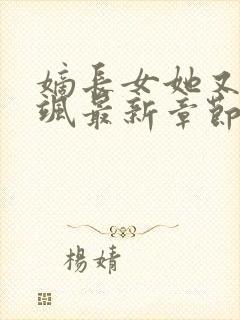 嫡長女她又
颯最新章節
楊婧